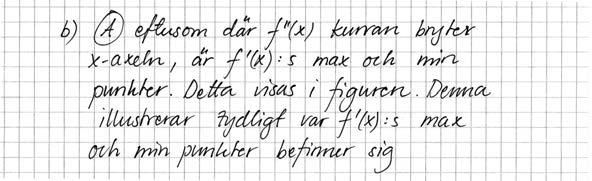 b) A eftusom där f"(x) kurvan bryter
x-axeln, är f'(x):s max och min
punkter. Detta visas i figuren. Denna
illustrerar tydligt var f'(x):s max
och min punkter befinner sig